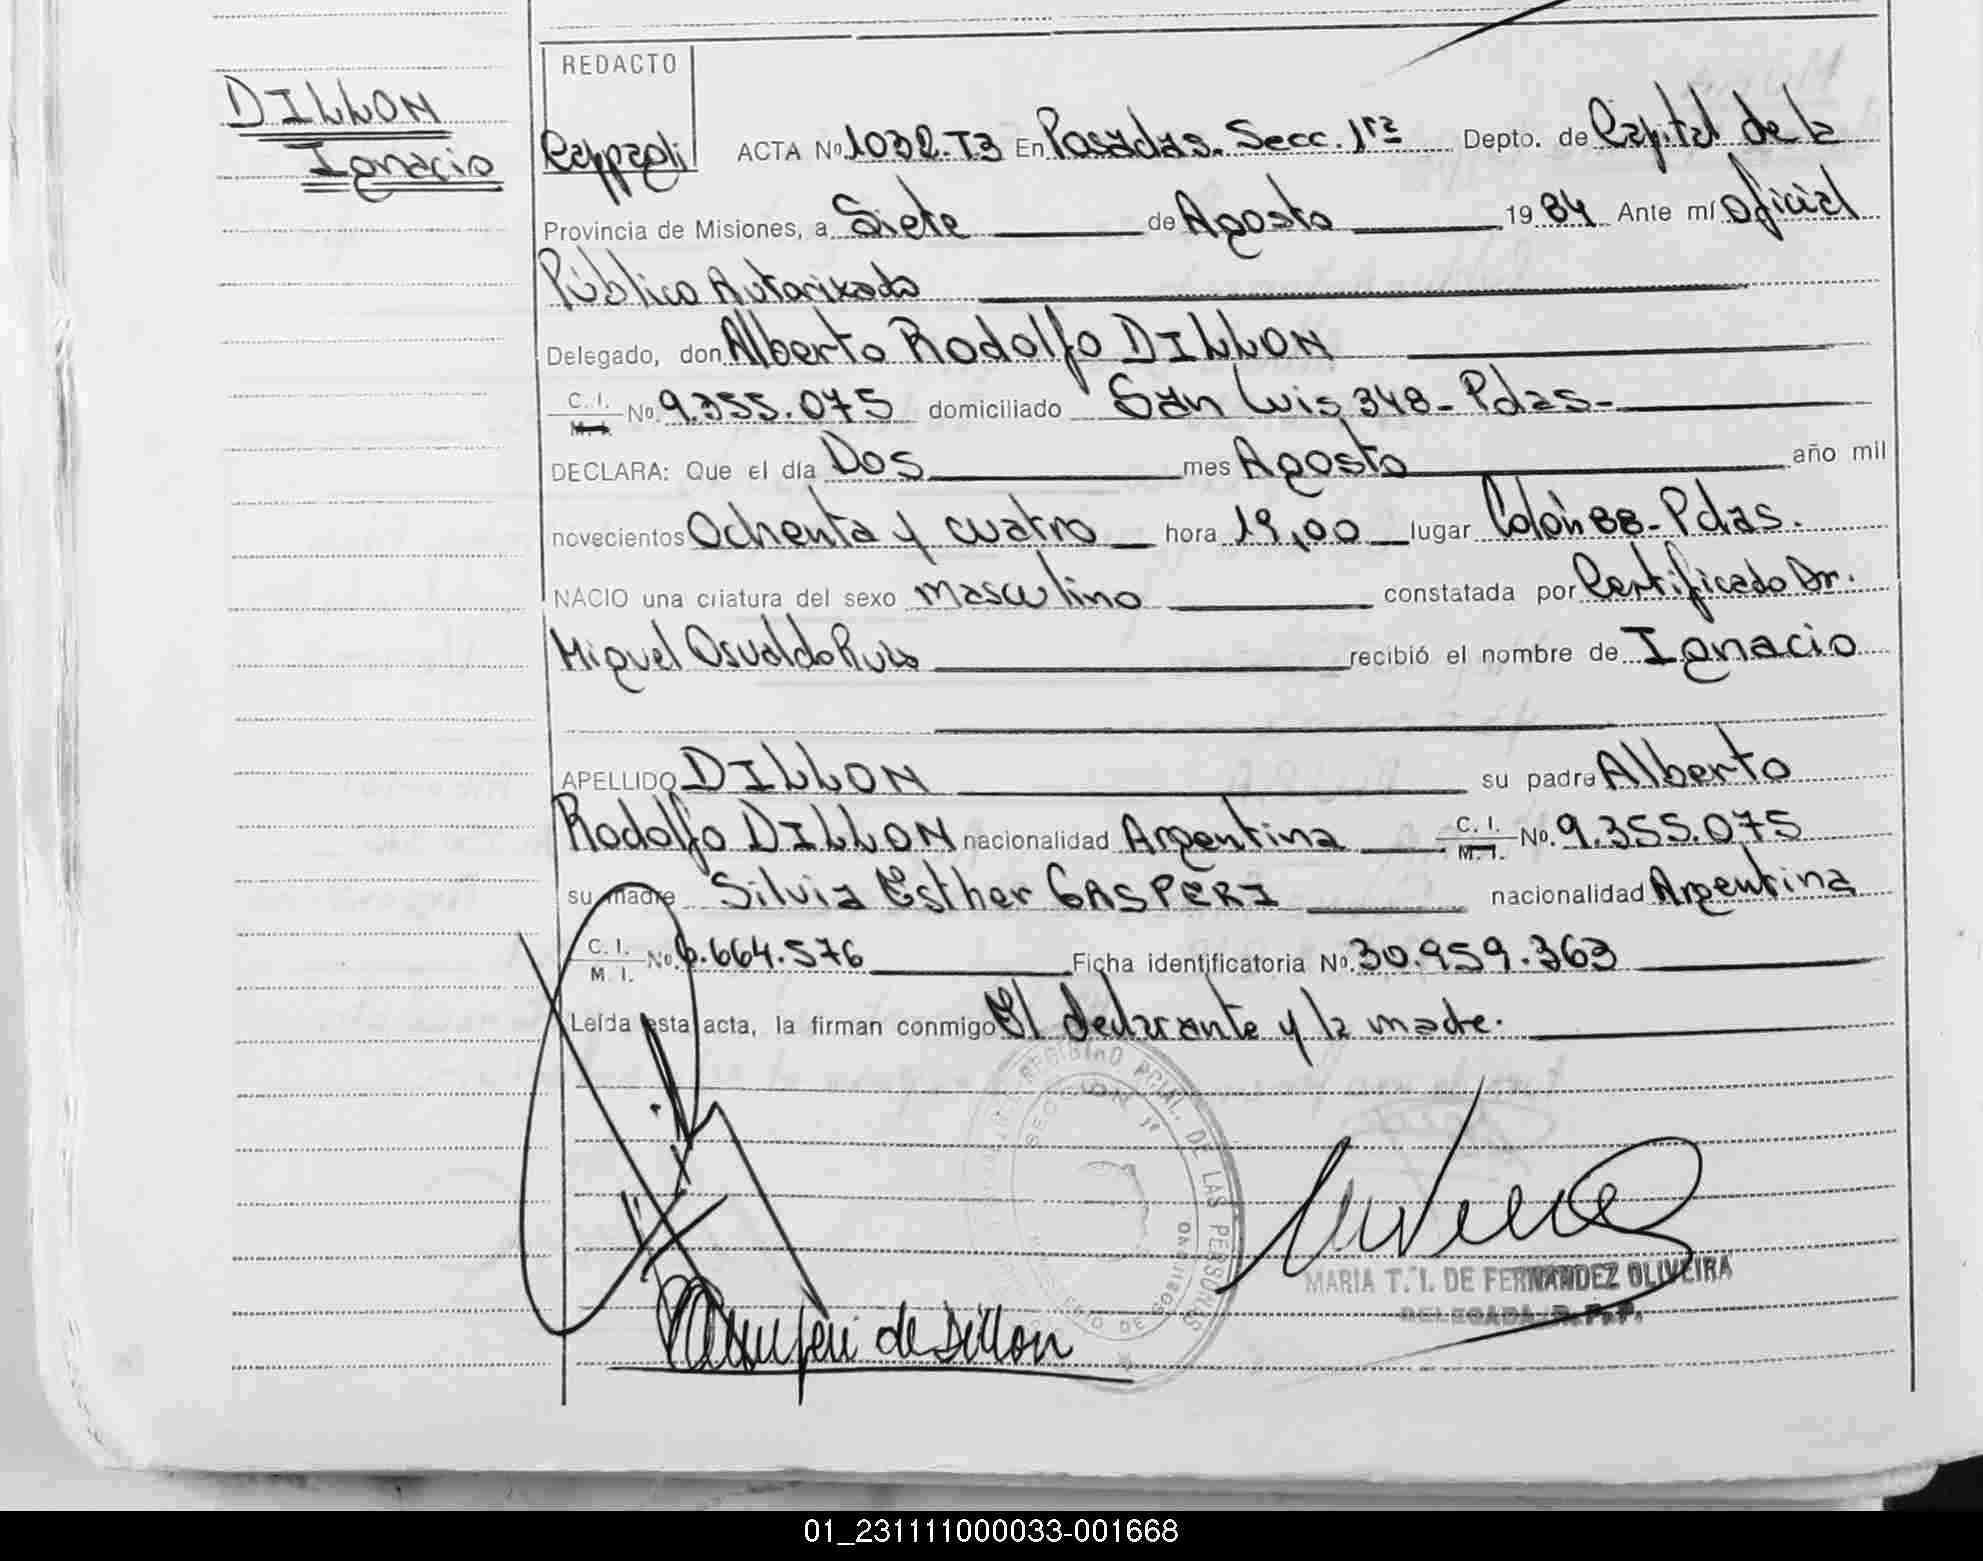 DILLON
Ignacio
REDACTO
Cappagli
ACTA Nº 1032.T3 En Posadas. Secc. 1ra Depto. de Capital de la
Provincia de Misiones, a Siete de Agosto 1984 Ante mí Oficial
Público Autorizado
Delegado, don Alberto Rodolfo DILLON
C. I. M. I. Nº 9.355.075 domiciliado San Luis 348- Pdas-
DECLARA: Que el día Dos mes Agosto año mil
novecientos Ochenta y cuatro hora 19,00 lugar Colón 88- Pdas.
NACIO una criatura del sexo masculino constatada por Certificado Dr.
Miguel Osvaldo Ruiz recibió el nombre de Ignacio
APELLIDO DILLON su padre Alberto
Rodolfo DILLON nacionalidad Argentina C. I. M. I. Nº 9.355.075
su madre Silvia Esther GASPERI nacionalidad Argentina
C. I. M. I. Nº 6.664.576 Ficha identificatoria Nº 30.959.363
Leída esta acta, la firman conmigo El declarante y la madre.
PCIAL. DE LAS PERSONAS
de Dillon
MARIA T. I. DE FERNANDEZ OLIVEIRA
DELEGADA R.P.P.
01_231111000033-001668